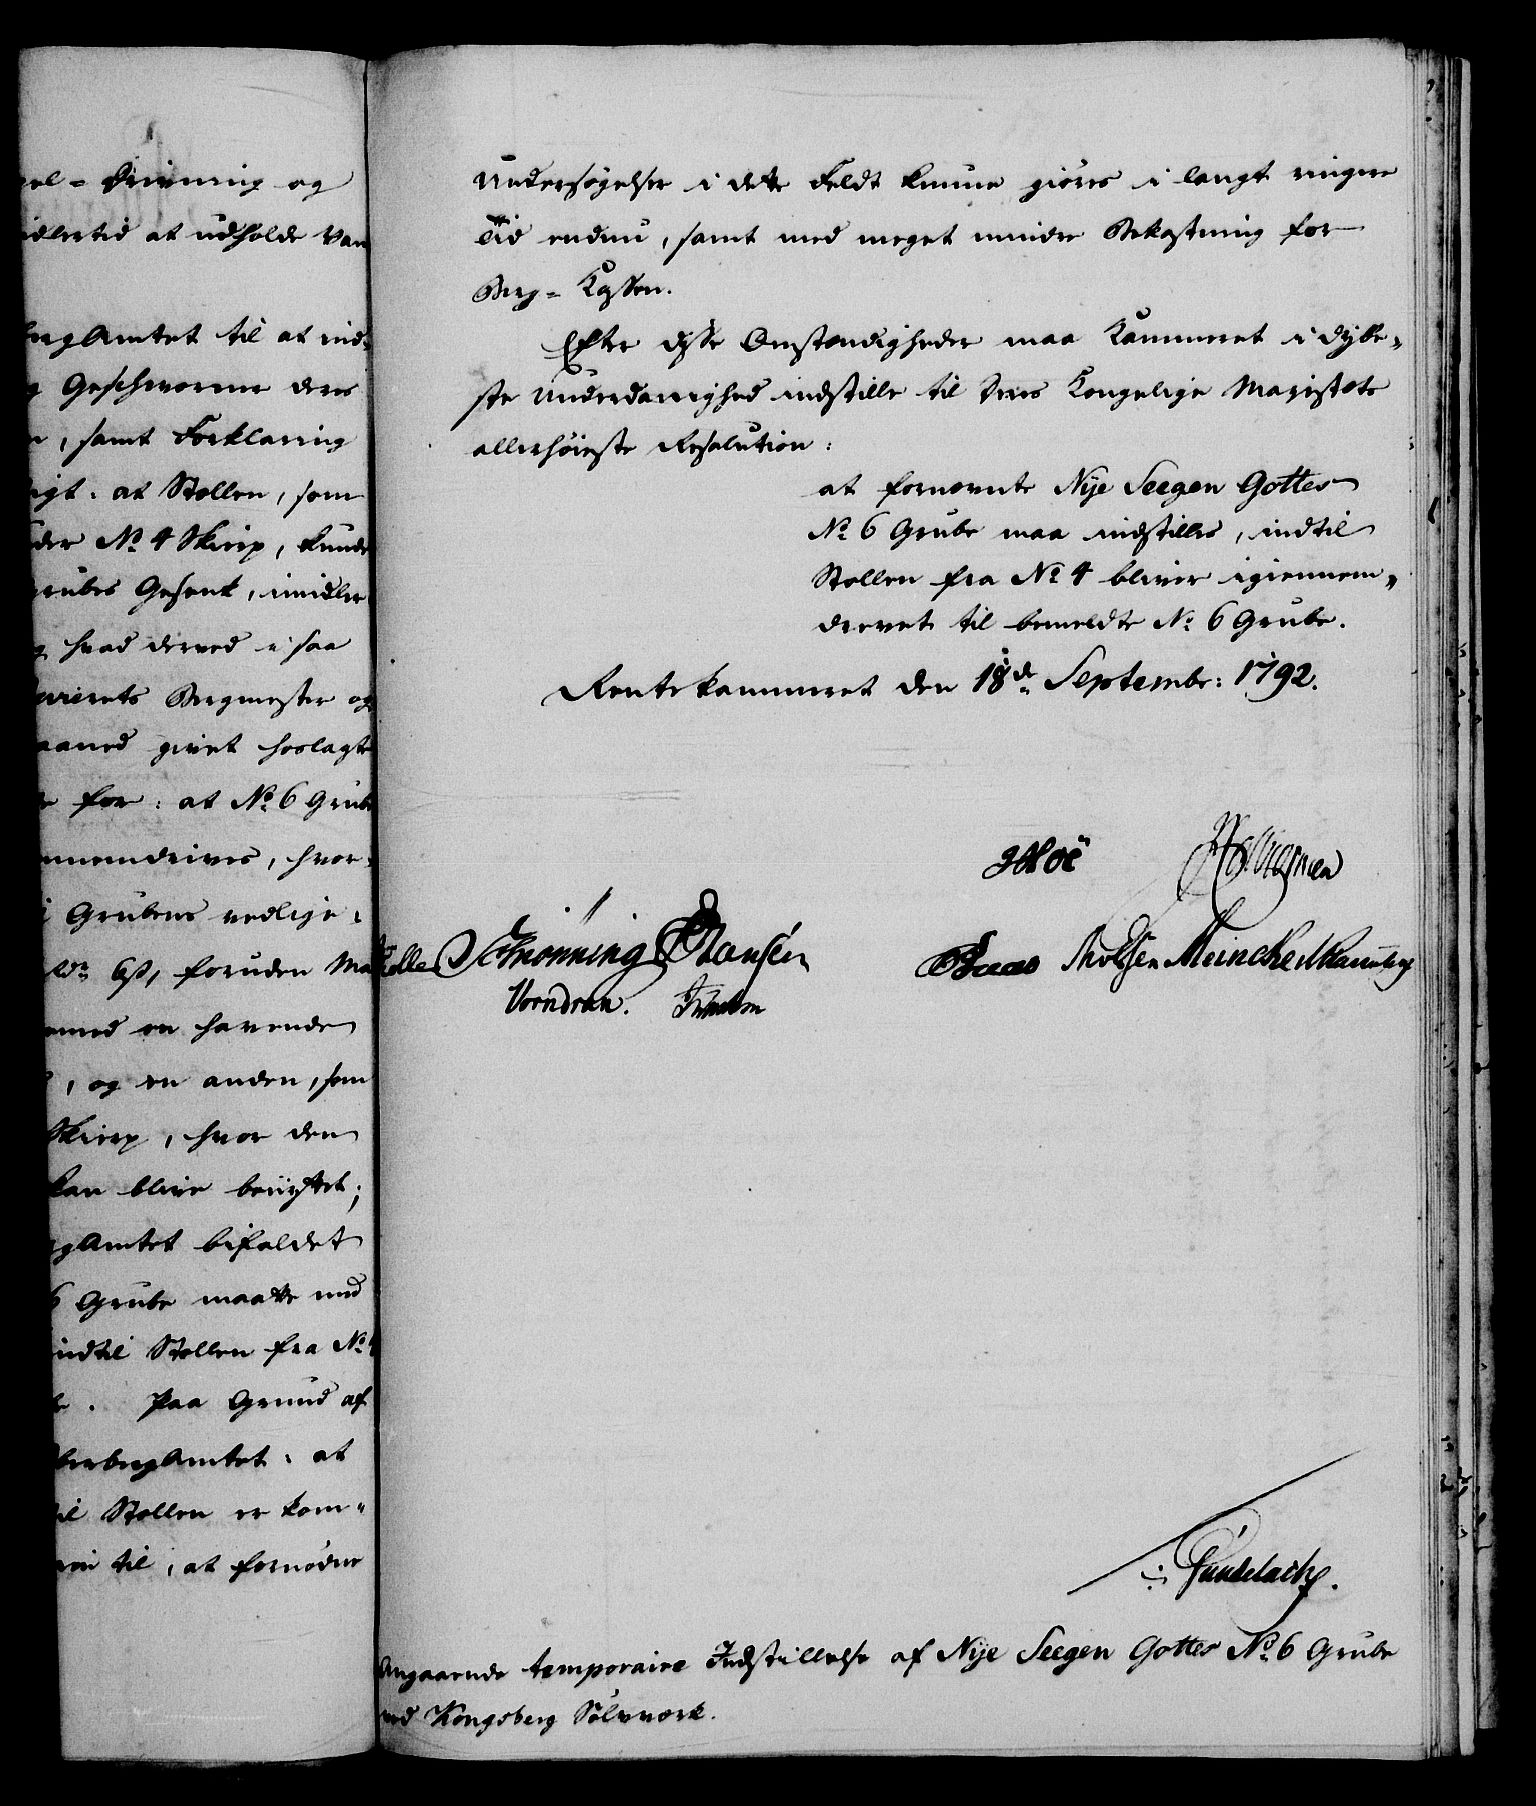 el-Drivning og
idlertid at udholde Van
ergAmtet til at ind-
Geschworne deres
, samt Forklaring
igt: at Stollen, som
der No. 4 Skirp, kunde
rubes Gesenk, imidler
hvad derved i saa
Bergmester og
aaned givet hoslagte
for: at No. 6 Grube
nnemdrives, hvor-
Grubens vedlige-
foruden Ma
med en havende
, og en anden, som
Skirp, hvor den
kan blive benyttet;
gAmtet bifaldet
6 Grube maatte med
indtil Stollen fra No. 4
. Paa Grund af
berbergAmtet: at
til Stollen er kom-
til, at fornødne
Undersøgelser i dette Feldt kunne giøres i langt ringere
Tid endnu, samt med meget mindre Bekostning for
Berg-Kassen.
Efter disse Omstændigheder maa Kammeret i dybe-
ste Underdanighed indstille til Deres Kongelige Majestæts
allerhøieste Resolution:
at fornævnte Nye Seegen Gottes
No. 6 Grube maa indstilles, indtil
Stollen fra No. 4 bliver igiennem-
drevet til bemeldte No. 6 Grube.
Rentekammeret den 18de Septembr: 1792.
Hoë
Schønning Hansen
Meincke
Vorndran.
Gundelach.
Angaaende temporaire Indstillelse af Nye Seegen Gottes No. 6 Grube
ved Kongsberg Sølvværk.